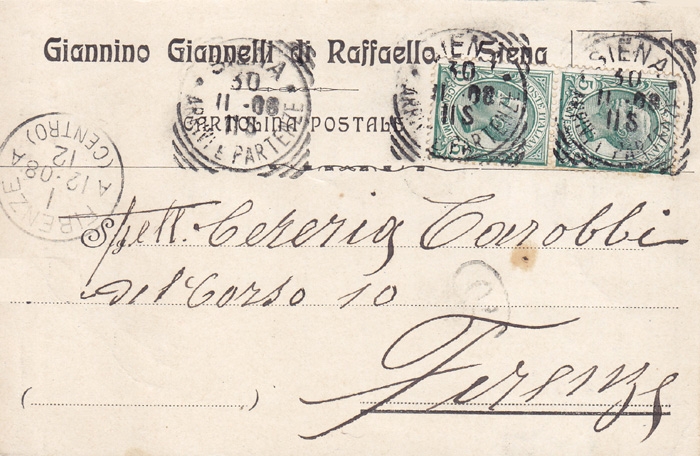 Giannino Giannelli di Raffaello Siena
CARTOLINA POSTALE
SIENA
30
11-08
11S
ARRIVI E PARTENZE
SIENA
30
11-08
11S
SIENA
30
11-08
11S
POSTE ITALIANE
FIRENZE
(CENTRO)
1
12
A 12·08 A
Spett. Cereria Carobbi
del Corso 10
Firenze
(
)